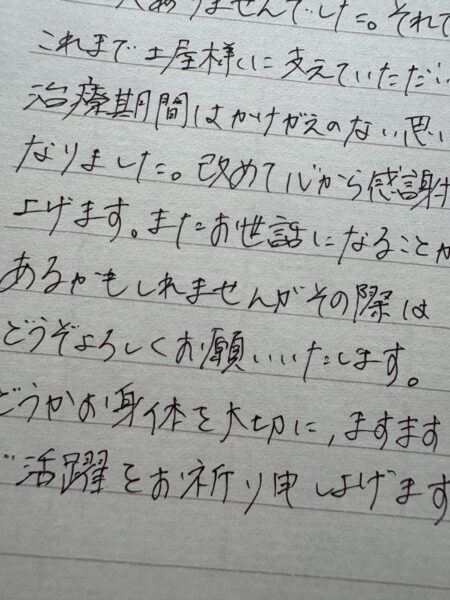 ありませんでした。それで
これまで土屋様に支えていただい
治療期間はかけがえのない思い
なりました。改めて心から感謝
上げます。またお世話になることが
あるかもしれませんがその際は
どうぞよろしくお願いいたします。
どうかお身体を大切に,ますます
ご活躍をお祈り申し上げます